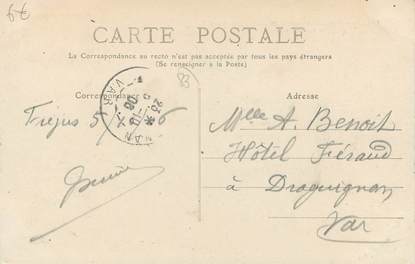 6€
CARTE POSTALE
La Correspondance au recto n'est pas acceptée par tous les pays étrangers
(Se renseigner à la Poste)
83
Correspondance
Adresse
VAR
Fréjus 5
Mlle A. Benoit
Hôtel Féraud
à Draguignan
Var